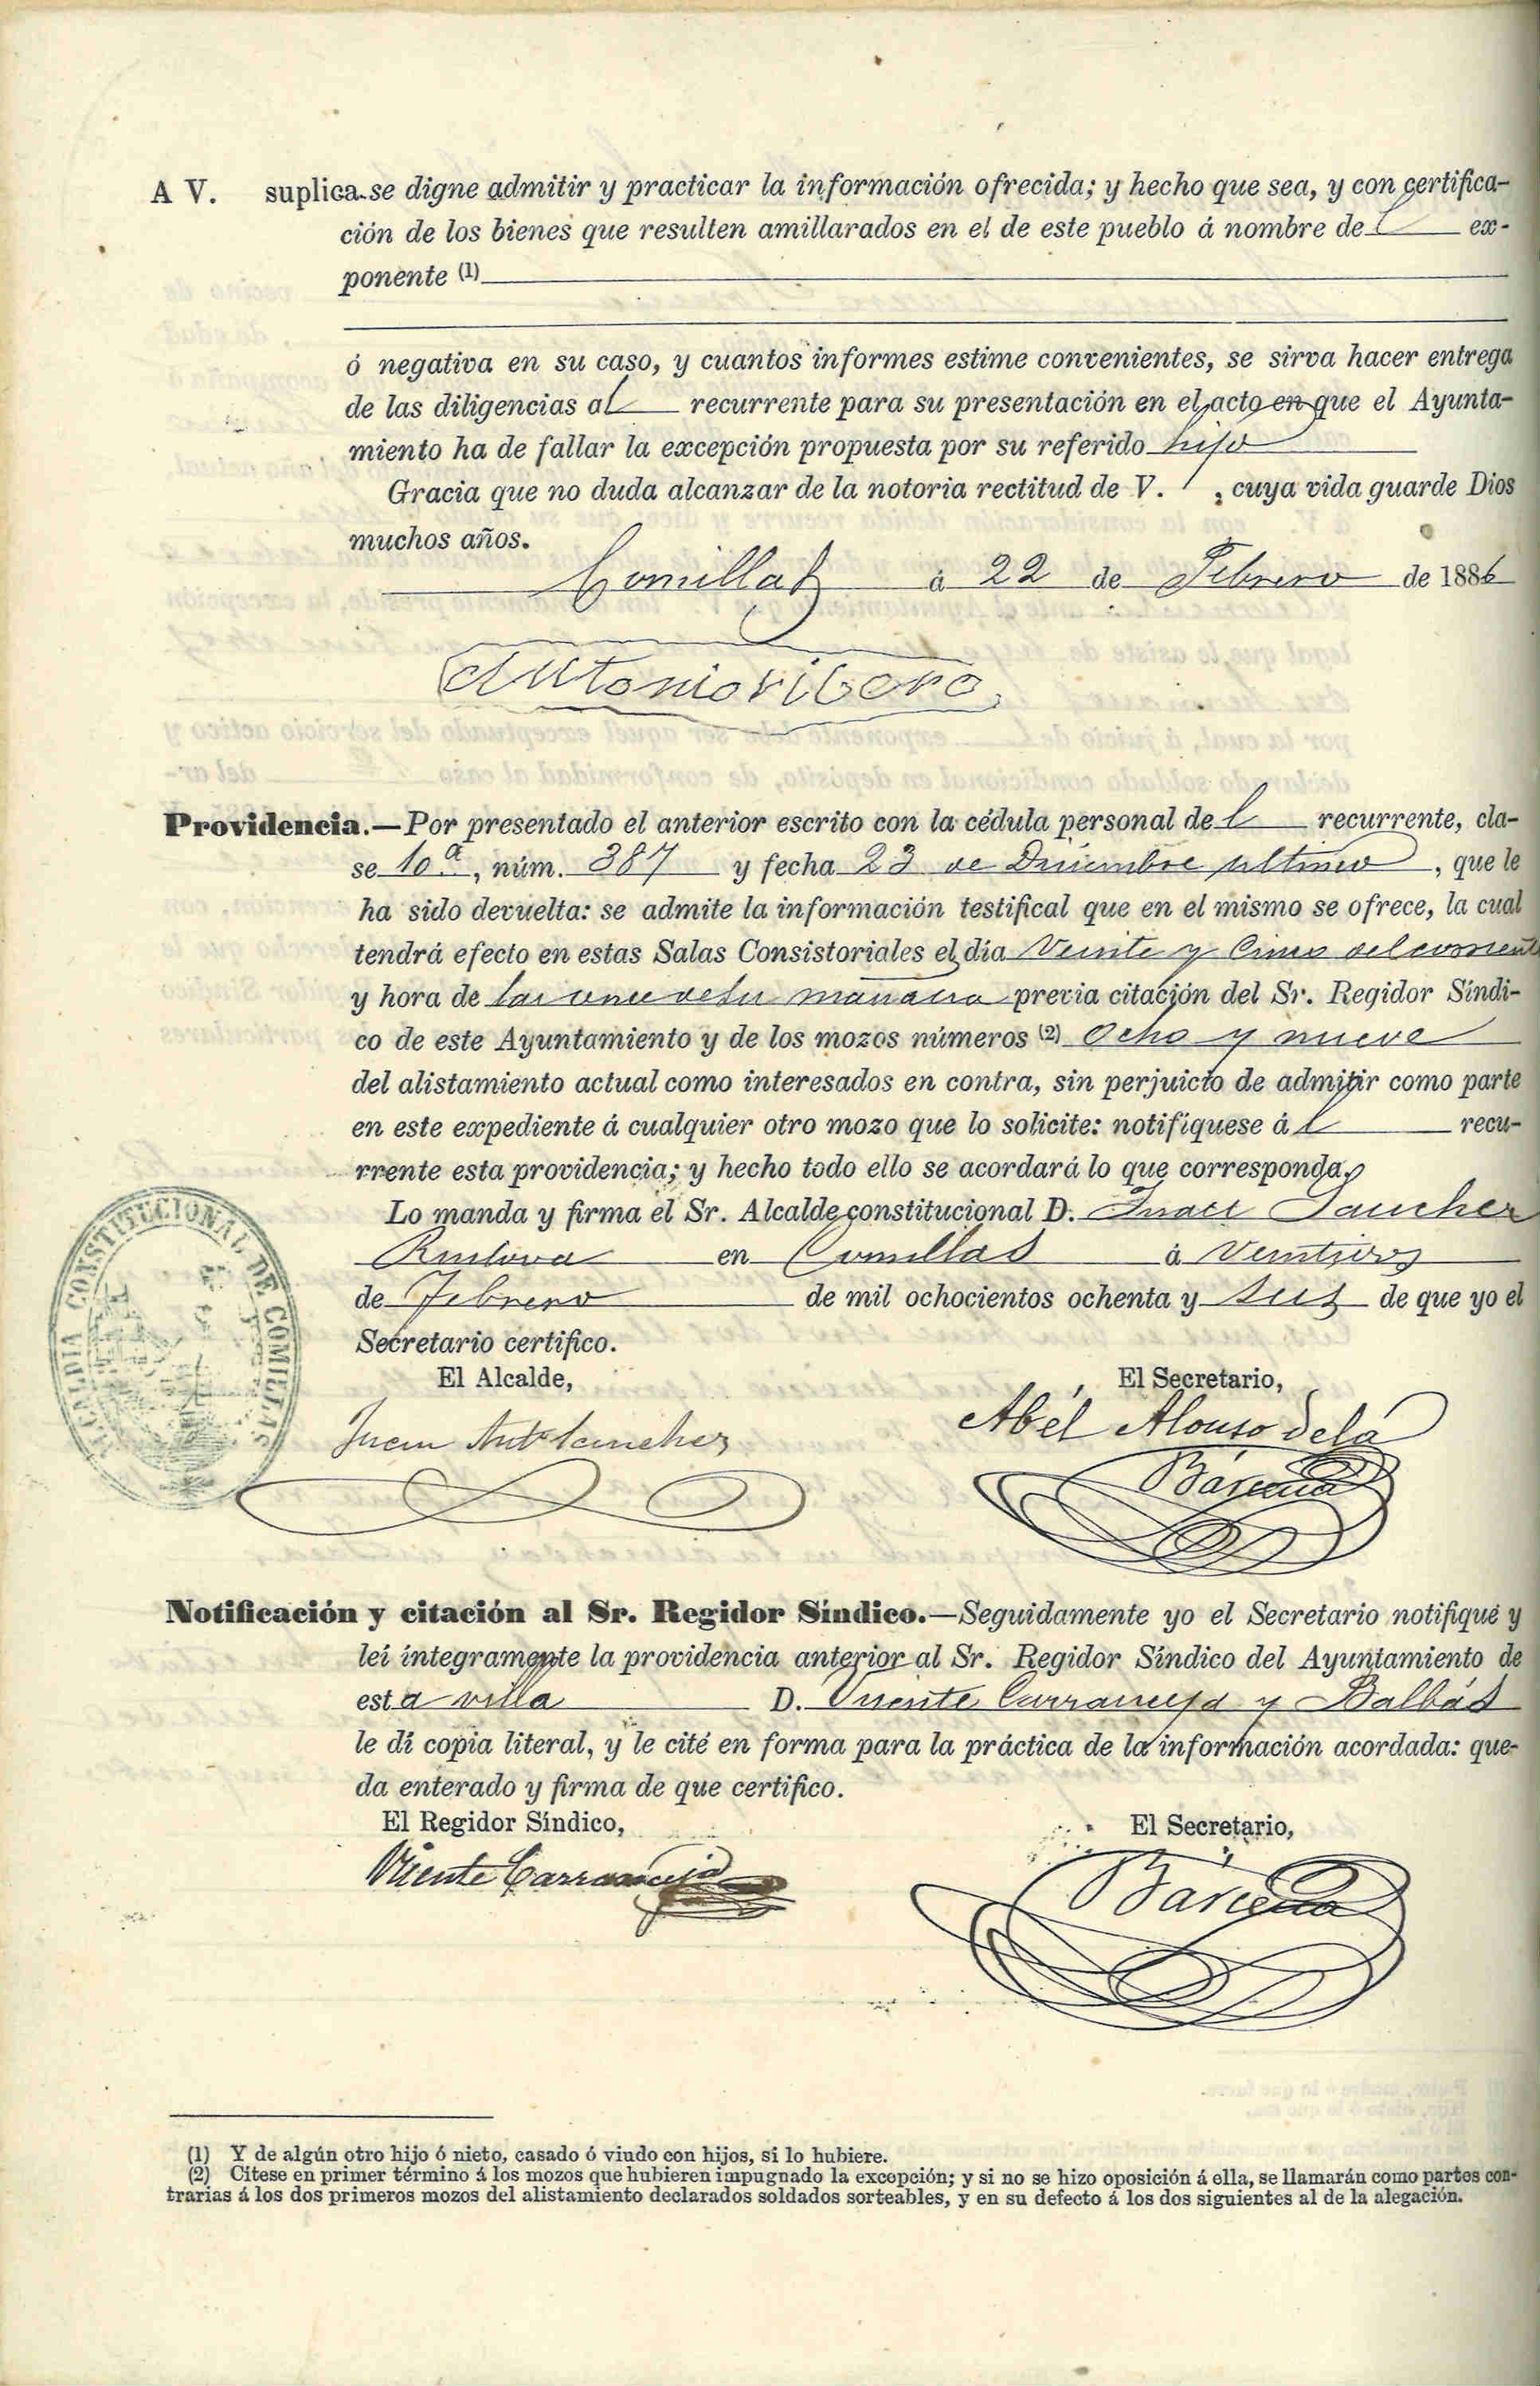 A V. suplica se digne admitir y practicar la información ofrecida; y hecho que sea, y con certifica-
ción de los bienes que resulten amillarados en el de este pueblo á nombre de l ex-
ponente (1)
ó negativa en su caso, y cuantos informes estime convenientes, se sirva hacer entrega
de las diligencias al recurrente para su presentación en el acto en que el Ayunta-
miento ha de fallar la excepción propuesta por su referido hijo
Gracia que no duda alcanzar de la notoria rectitud de V. , cuya vida guarde Dios
muchos años.
Comillas á 22 de Febrero de 1886
Antonio ribero
Providencia.—Por presentado el anterior escrito con la cédula personal de l recurrente, cla-
se 10ª, núm. 387 y fecha 23 de Diciembre ultimo, que le
ha sido devuelta: se admite la información testifical que en el mismo se ofrece, la cual
tendrá efecto en estas Salas Consistoriales el día Veinte y Cinco del corriente
y hora de las once de su mañana previa citación del Sr. Regidor Síndi-
co de este Ayuntamiento y de los mozos números (2) Ocho y nueve
del alistamiento actual como interesados en contra, sin perjuicio de admitir como parte
en este expediente á cualquier otro mozo que lo solicite: notifíquese á l recu-
rrente esta providencia; y hecho todo ello se acordará lo que corresponda.
Lo manda y firma el Sr. Alcalde constitucional D. Juan Sanchez
en Comillas á Veintidos
de Febrero de mil ochocientos ochenta y seis de que yo el
Secretario certifico.
El Alcalde, El Secretario,
Juan Antº Sanchez Abel Alonso de la
Bárcena
ALCALDIA CONSTITUCIONAL DE COMILLAS
Notificación y citación al Sr. Regidor Síndico.—Seguidamente yo el Secretario notifiqué y
leí íntegramente la providencia anterior al Sr. Regidor Síndico del Ayuntamiento de
esta villa D. Vicente Carranceja y Balbás
le dí copia literal, y le cité en forma para la práctica de la información acordada: que-
da enterado y firma de que certifico.
El Regidor Síndico, El Secretario,
Vicente Carranceja Bárcena
(1) Y de algún otro hijo ó nieto, casado ó viudo con hijos, si lo hubiere.
(2) Cítese en primer término á los mozos que hubieren impugnado la excepción; y si no se hizo oposición á ella, se llamarán como partes con-
trarias á los dos primeros mozos del alistamiento declarados soldados sorteables, y en su defecto á los dos siguientes al de la alegación.